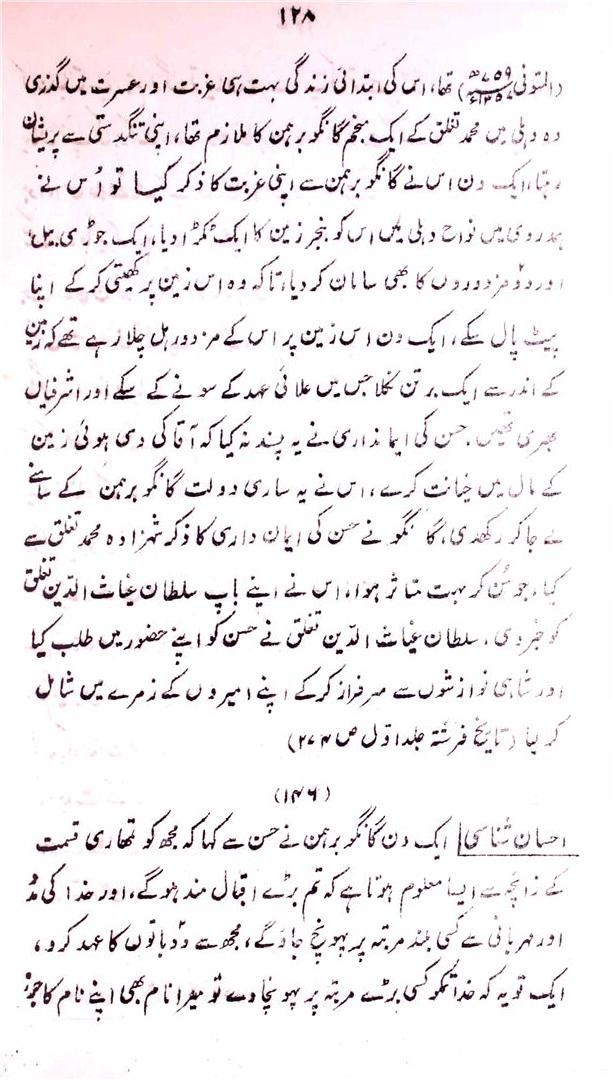 ۱۲۸
(المتوفی ۷۵۹ھ ۱۳۵۷ء) تھا، اس کی ابتدائی زندگی بہت ہی غربت اور عسرت میں گذری
وہ دہلی میں محمد تغلق کے ایک منجم گانگو برہمن کا ملازم تھا، اپنی تنگدستی سے پریشان
رہتا، ایک دن اس نے گانگو برہمن سے اپنی غربت کا ذکر کیا تو اُس نے
ہمدردی میں نواح دہلی میں اس کو بنجر زمین کا ایک ٹکڑا دیا، ایک جوڑی بیل
اور دو مزدوروں کا بھی سامان کر دیا، تاکہ وہ اس زمین پر کھیتی کر کے اپنا
پیٹ پال سکے، ایک دن اس زمین پر اس کے مزدور ہل چلا رہے تھے کہ زمین
کے اندر سے ایک برتن نکلا جس میں علائی عہد کے سونے کے سکے اور اشرفیاں
بھری تھیں۔ حسن کی ایمانداری نے یہ پسند نہ کیا کہ آقا کی دی ہوئی زمین
کے مال میں خیانت کرے، اس نے یہ ساری دولت گانگو برہمن کے سامنے
لے جا کر رکھدی، گانگو نے حسن کی ایمان داری کا ذکر شہزادہ محمد تغلق سے
کیا، جو سُن کر بہت متاثر ہوا، اس نے اپنے باپ سلطان غیاث الدّین تغلق
کو خبر دی، سلطان غیاث الدّین تغلق نے حسن کو اپنے حضور میں طلب کیا
اور شاہی نوازشوں سے سرفراز کر کے اپنے امیروں کے زمرے میں شامل
کر لیا (تاریخ فرشتہ جلد اوّل ص ۲۷۴)
(۱۴۶)
احسان شناسی| ایک دن گانگو برہمن نے حسن سے کہا کہ مجھ کو تمھاری قسمت
کے زائچہ سے ایسا معلوم ہوتا ہے کہ تم بڑے اقبال مند ہوگے، اور خدا کی مدد
اور مہربانی سے کسی بلند مرتبہ پر پہونچ جاؤ گے، مجھ سے دو باتوں کا عہد کرو،
ایک تو یہ کہ خدا تمکو کسی بڑے مرتبہ پر پہونچا دے تو میرا نام بھی اپنے نام کا جزو